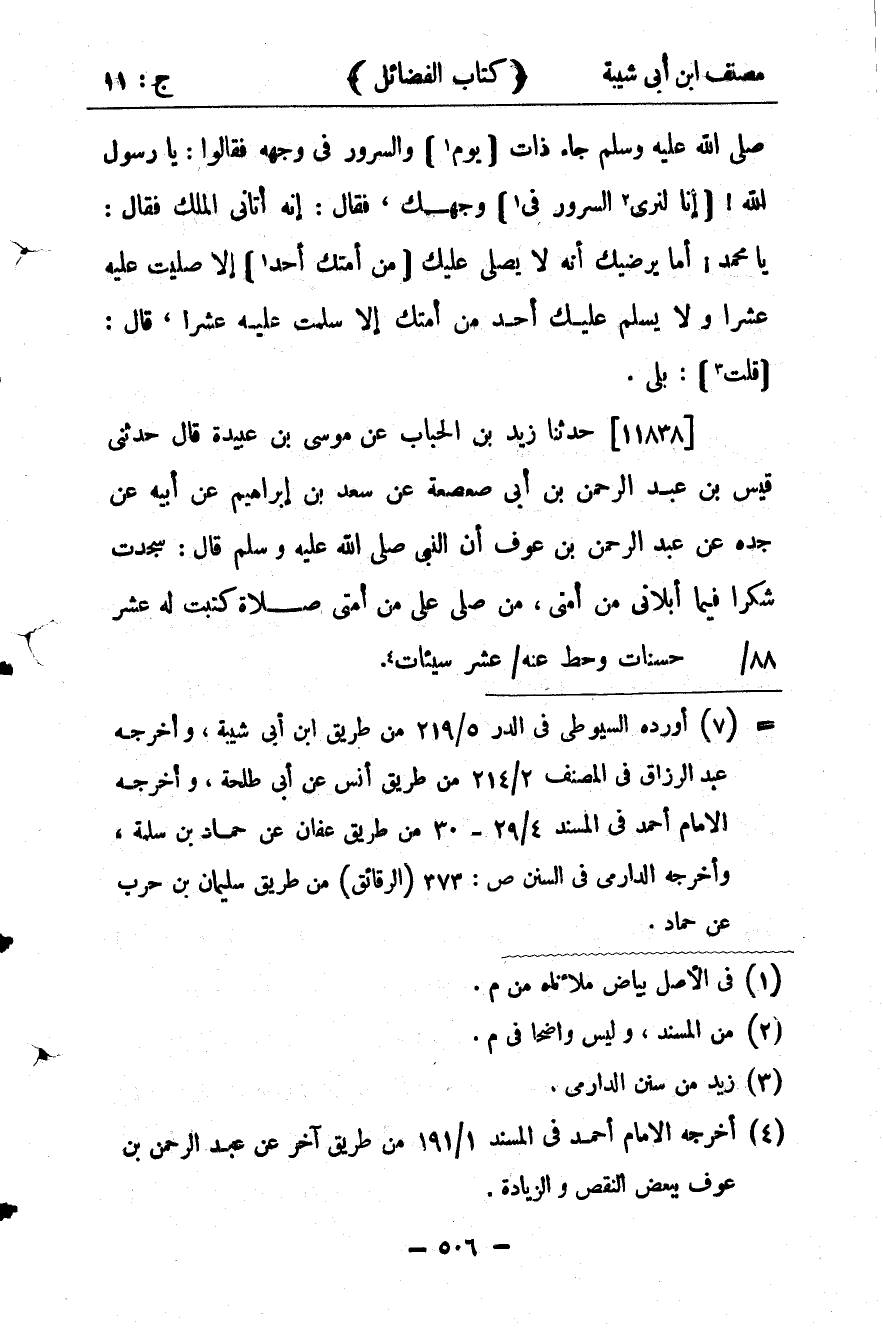 مصنف ابن أبى شيبة ﴿ كتاب الفضائل ﴾ ج : ١١
صلى الله عليه وسلم جاء ذات [ يوم١ ] والسرور فى وجهه فقالوا : يا رسول
لله ! [ إنا لنرى٢ السرور فى١ ] وجهك ، فقال : إنه أتانى الملك فقال :
يا محمد ! أما يرضيك أنه لا يصلى عليك [ من أمتك أحد١ ] إلا صليت عليه
عشرا و لا يسلم عليك أحد من أمتك إلا سلمت عليه عشرا ، قال :
[ قلت٣ ] : بلى .
[١١٨٣٨] حدثنا زيد بن الحباب عن موسى بن عبيدة قال حدثنى
قيس بن عبد الرحمن بن أبى صعصعة عن سعد بن إبراهيم عن أبيه عن
جده عن عبد الرحمن بن عوف أن النبى صلى الله عليه و سلم قال : سجدت
شكرا فيما أبلانى من أمتى ، من صلى على من أمتى صلاة كتبت له عشر
٨٨/ حسنات وحط عنه/ عشر سيئات٤.
= (٧) أورده السيوطى فى الدر ٢١٩/٥ من طريق ابن أبى شيبة ، و أخرجه
عبد الرزاق فى المصنف ٢١٤/٢ من طريق أنس عن أبى طلحة ، و أخرجه
الامام أحمد فى المسند ٢٩/٤ - ٣٠ من طريق عفان عن حماد بن سلمة ،
وأخرجه الدارمى فى السنن ص : ٣٧٣ (الرقائق) من طريق سليمان بن حرب
عن حماد .
(١) فى الأصل بياض ملأناه من م .
(٢) من المسند ، و ليس واضحا فى م .
(٣) زيد من سنن الدارمى .
(٤) أخرجه الامام أحمد فى المسند ١٩١/١ من طريق آخر عن عبد الرحمن بن
عوف ببعض النقص و الزيادة .
- ٥٠٦ -